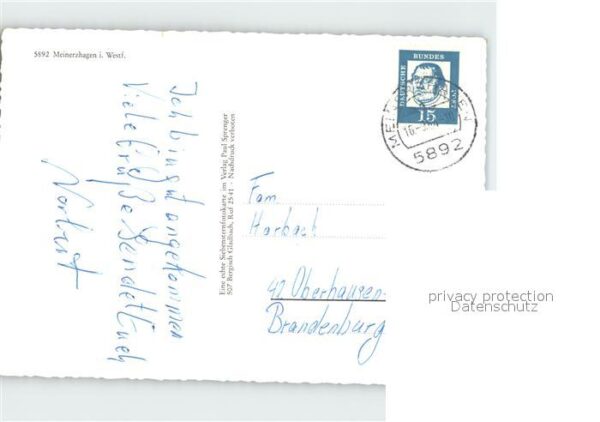 5892 Meinerzhagen i. Westf.
Ich bin gut angekommen
Viele Grüße sendet Euch
Norbert
Eine echte Siebensternfotokarte im Verlag Paul Sprenger
507 Bergisch Gladbach, Ruf 2541 · Nachdruck verboten
DEUTSCHE
BUNDES
POST
15
5892
Fam.
Harbach
42 Oberhausen-
Brandenburg
privacy protection
Datenschutz